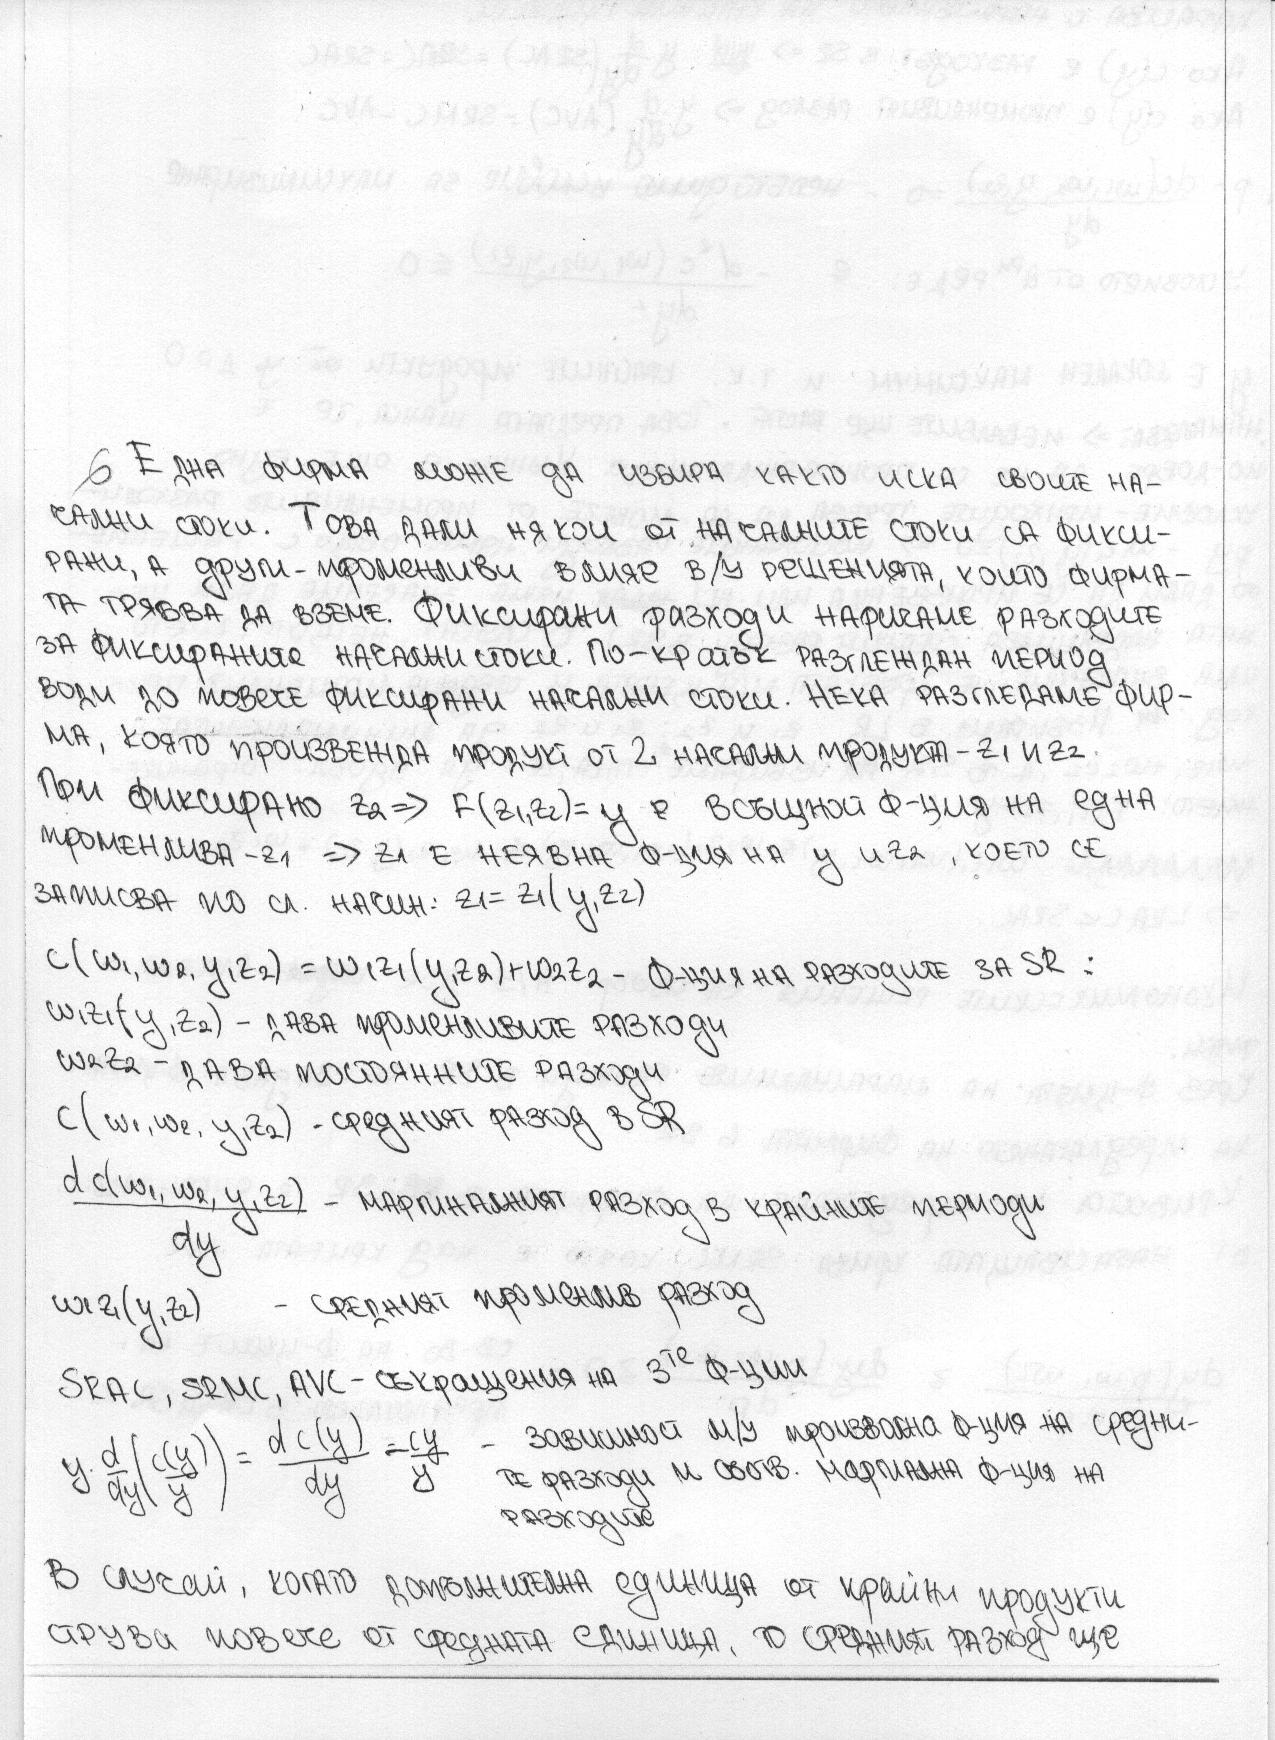 6 Една фирма може да избира както иска своите на-
чални стоки. Това дали някои от началните стоки са фикси-
рани, а други - променливи влияе в/у решенията, които фирма-
та трябва да вземе. Фиксирани разходи наричаме разходите
за фиксираните начални стоки. По-кратък разглеждан период
води до повече фиксирани начални стоки. Нека разгледаме фир-
ма, която произвежда продукт от 2 начални продукта - z1 и z2.
При фиксирано z2 => F(z1,z2)=y е всъщност ф-ция на една
променлива - z1 => z1 е неявна ф-ция на y и z2, което се
записва по сл. начин: z1=z1(y,z2)
c(w1,w2,y,z2) = w1z1(y,z2)+w2z2 - ф-ция на разходите за SR:
w1z1(y,z2) - дава променливите разходи
w2z2 - дава постоянните разходи
c(w1,w2,y,z2) - средният разход в SR
dc(w1,w2,y,z2)/dy - маргиналният разход в крайните периоди
w1z1(y,z2) - средният променлив разход
SRAC, SRMC, AVC - съкращения на 3те ф-ции
y.d/dy(c(y)/y) = dc(y)/dy = cy/y - зависимост м/у произволна ф-ция на средни-
те разходи и съотв. маргиална ф-ция на
разходите
В случай, когато допълнителна единица от крайни продукти
струва повече от средната единица, то средният разход ще